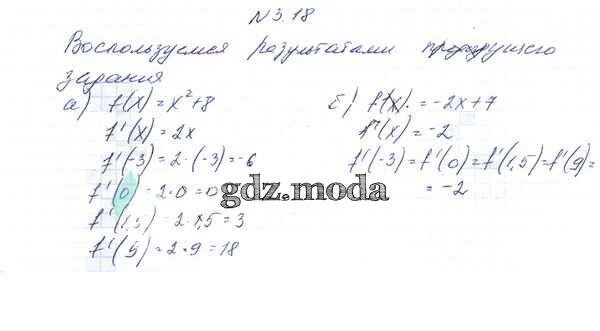 N3.18
Воспользуемся результатами предыдущего
задания
а) f(x) = x²+8
f'(x) = 2x
f'(-3) = 2·(-3) = -6
f'(0) = 2·0 = 0
f'(1,5) = 2·1,5 = 3
f'(9) = 2·9 = 18
б) f(x) = -2x+7
f'(x) = -2
f'(-3) = f'(0) = f'(1,5) = f'(9) =
= -2
gdz.moda